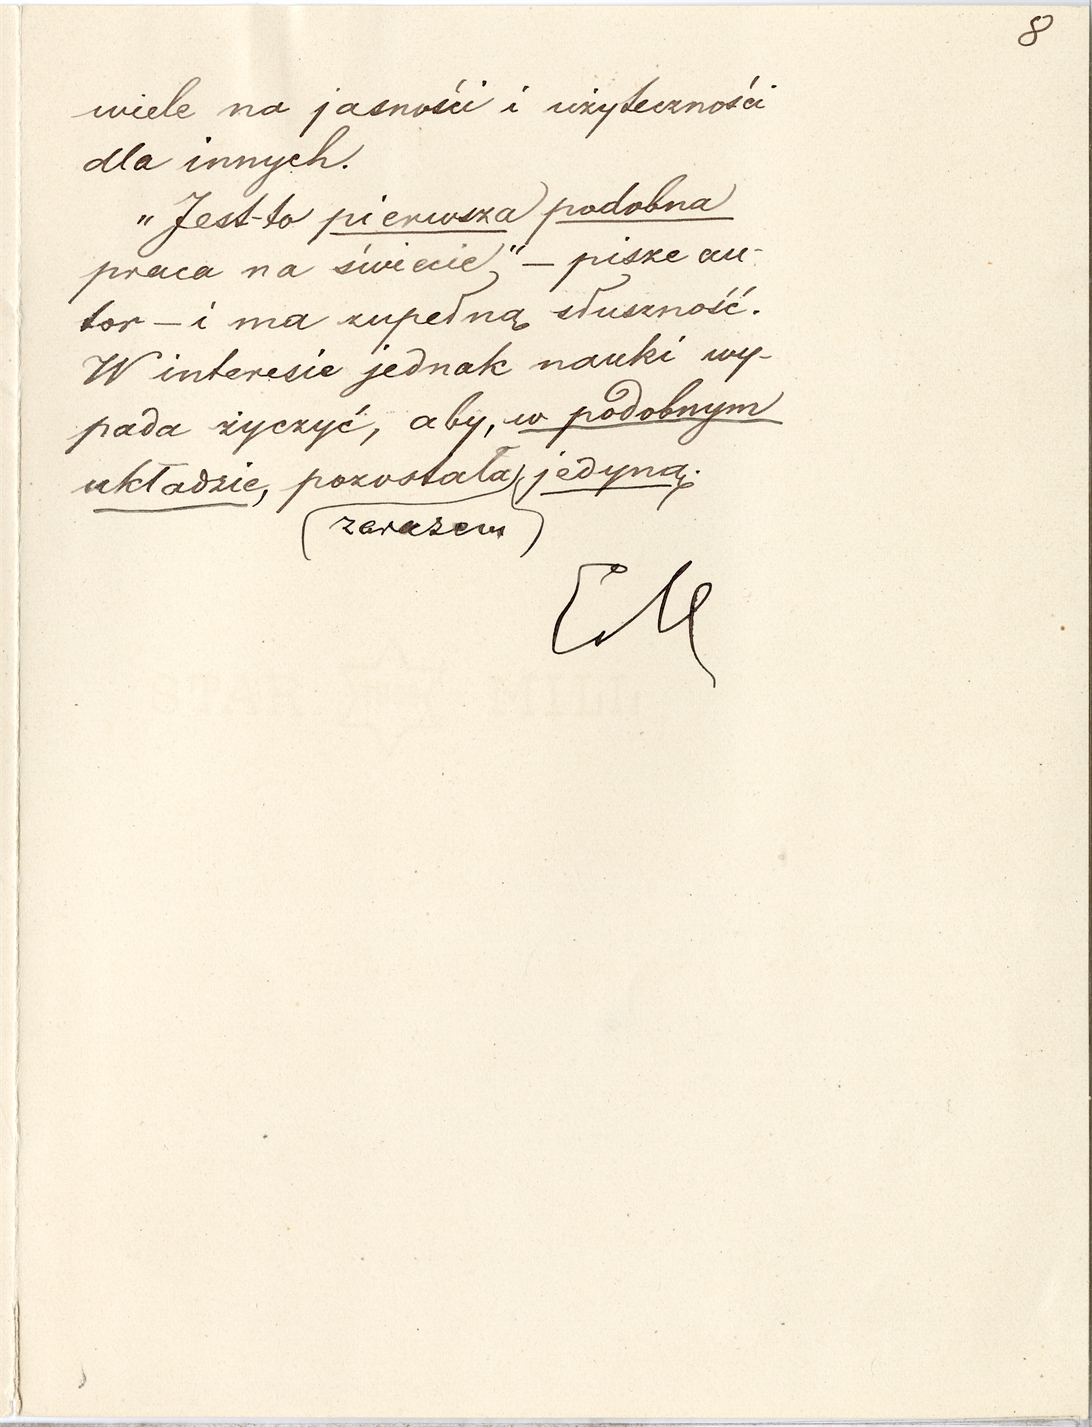 8
wiele na jasności i użyteczności
dla innych.
„Jest-to pierwsza podobna
praca na świecie,” — pisze au-
tor — i ma zupełną słuszność.
W interesie jednak nauki wy-
pada życzyć, aby, w podobnym
układzie, pozostała jedyną.
zarazem
EM